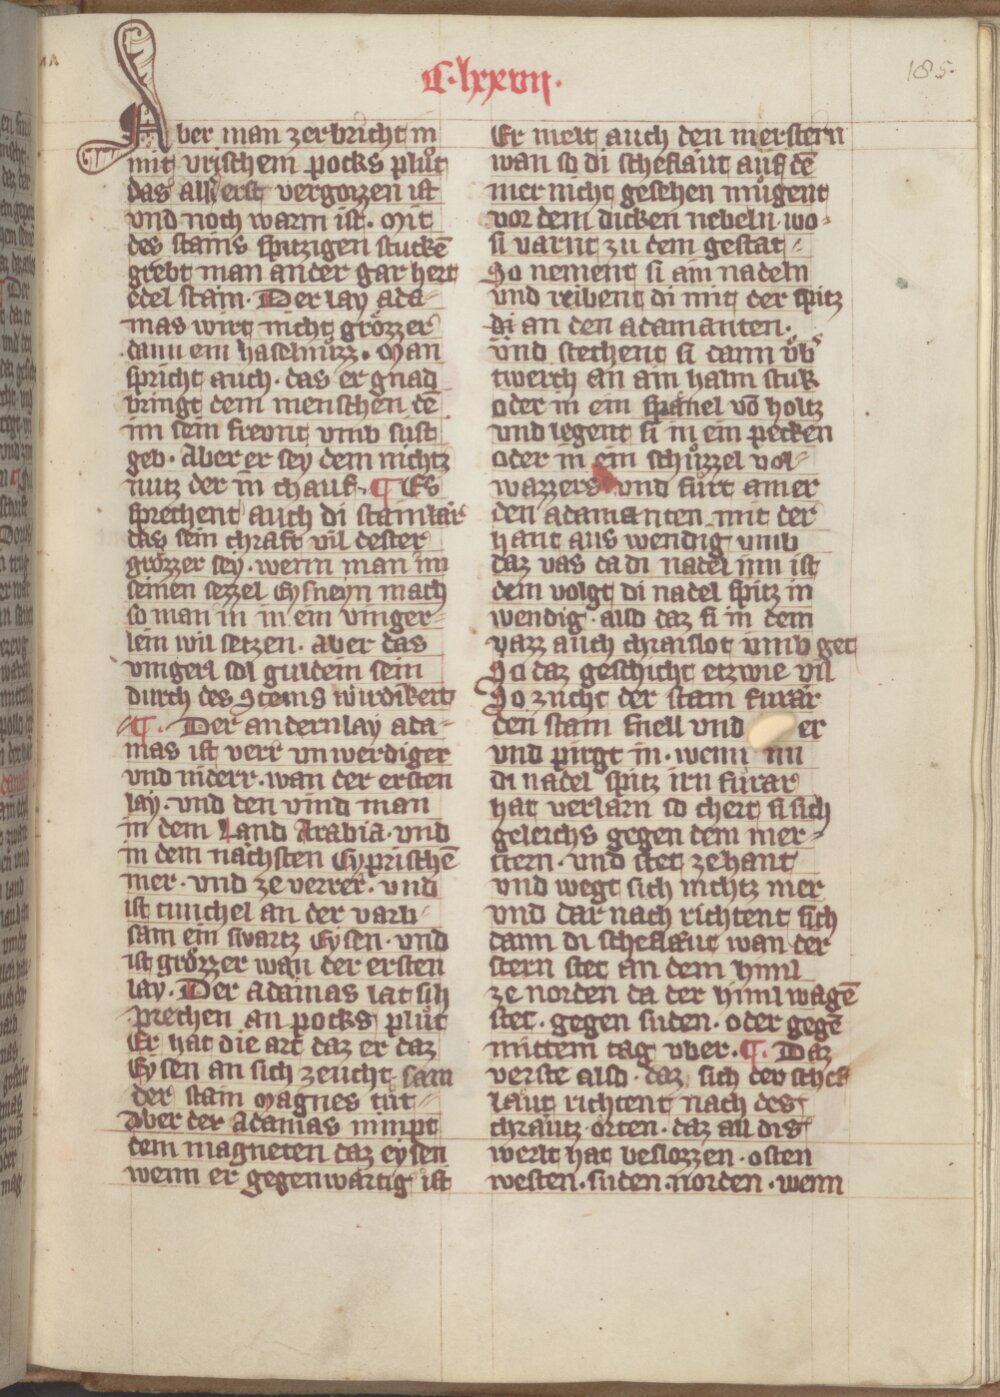 C·lxxvii·
185·
Aber man zerbricht in
mit vrischem pocks plůt
das all erst vergozzen ist
vnd noch warm ist· Mit
des stains spitzigen stuckē
grebt man ander gar hert
edel stain· Der lay ada-
mas wirt nicht grözzer
dann ein haselnůzz· Man
spricht auch· das er gnad
bringt dem menschen dē
in sein frevnt vmb sust
geb· Aber er sey dem nichtz
nutz der in chauf· ¶ Es
sprechent auch di stainlär
das sein chraft vil dester
grözzer sey· wenn man im
seinen sezzel Eysneyn mach
so man in in ein vinger-
lein wil setzen· Aber das
vingerl sol guldein sein
durch des Steins wirdikeit
¶· Der andernlay ada-
mas ist verr vnwerdiger
vnd niderr· wan der ersten
lay· vnd den vind man
in dem Land Arabia· vnd
in dem nächsten Cyprischē
mer· vnd ze verrer· vnd
ist tunchel an der varb
sam ein swartz Eysen· vnd
ist grözzer wan der ersten
lay· Der Adamas lat sih
prechen an pocks plůt
Er hat die art daz er daz
Eysen an sich zeucht sam
der stain Magnes tut-
Aber der Adamas nimpt
dem magneten daz eysen
wenn er gegenwärtig ist
Er melt auch den merstern
wan so di schefläut auf dē
mer nicht gesehen můgent
vor dem dicken nebeln· wo-
si varnt zu dem gestat-
So nement si ain nadeln
vnd reibent di mit der spitz
di an den adamanten·
vnd stechent si dann vber
twerch an ain halm stuk
oder in ein spänel vō holtz
vnd legent si in ein pecken
oder in ein schüzzel vol-
wazzers vnd fürt ainer
den adamanten mit der
hant aus wendig vmb
daz vas da di nadel inn ist
dem volgt di nadel spitz in
wendig· also daz si in dem
vazz auch chraislot vmb get
So daz geschicht etzwie vil
So zucht der stain fürär
den stain snell vnd er
vnd pirgt in· wenn nu
di nadel spitz irn fürär
hat verlarn so chert si sich
geleichs gegen dem mer-
stern· vnd stet zehant
vnd wegt sich nichtz mer
vnd dar nach richtent sich
dann di schefläut wan der
stern stet an dem himl
ze norden da der himlwagē
stet· gegen suden· oder gegē
mittem tag vber· ¶· Daz
verste also· daz sich dev schef
läut richtent nach des
chräutz orten· daz all dis
werlt hat beslozzen· osten
westen· suden· norden· wenn